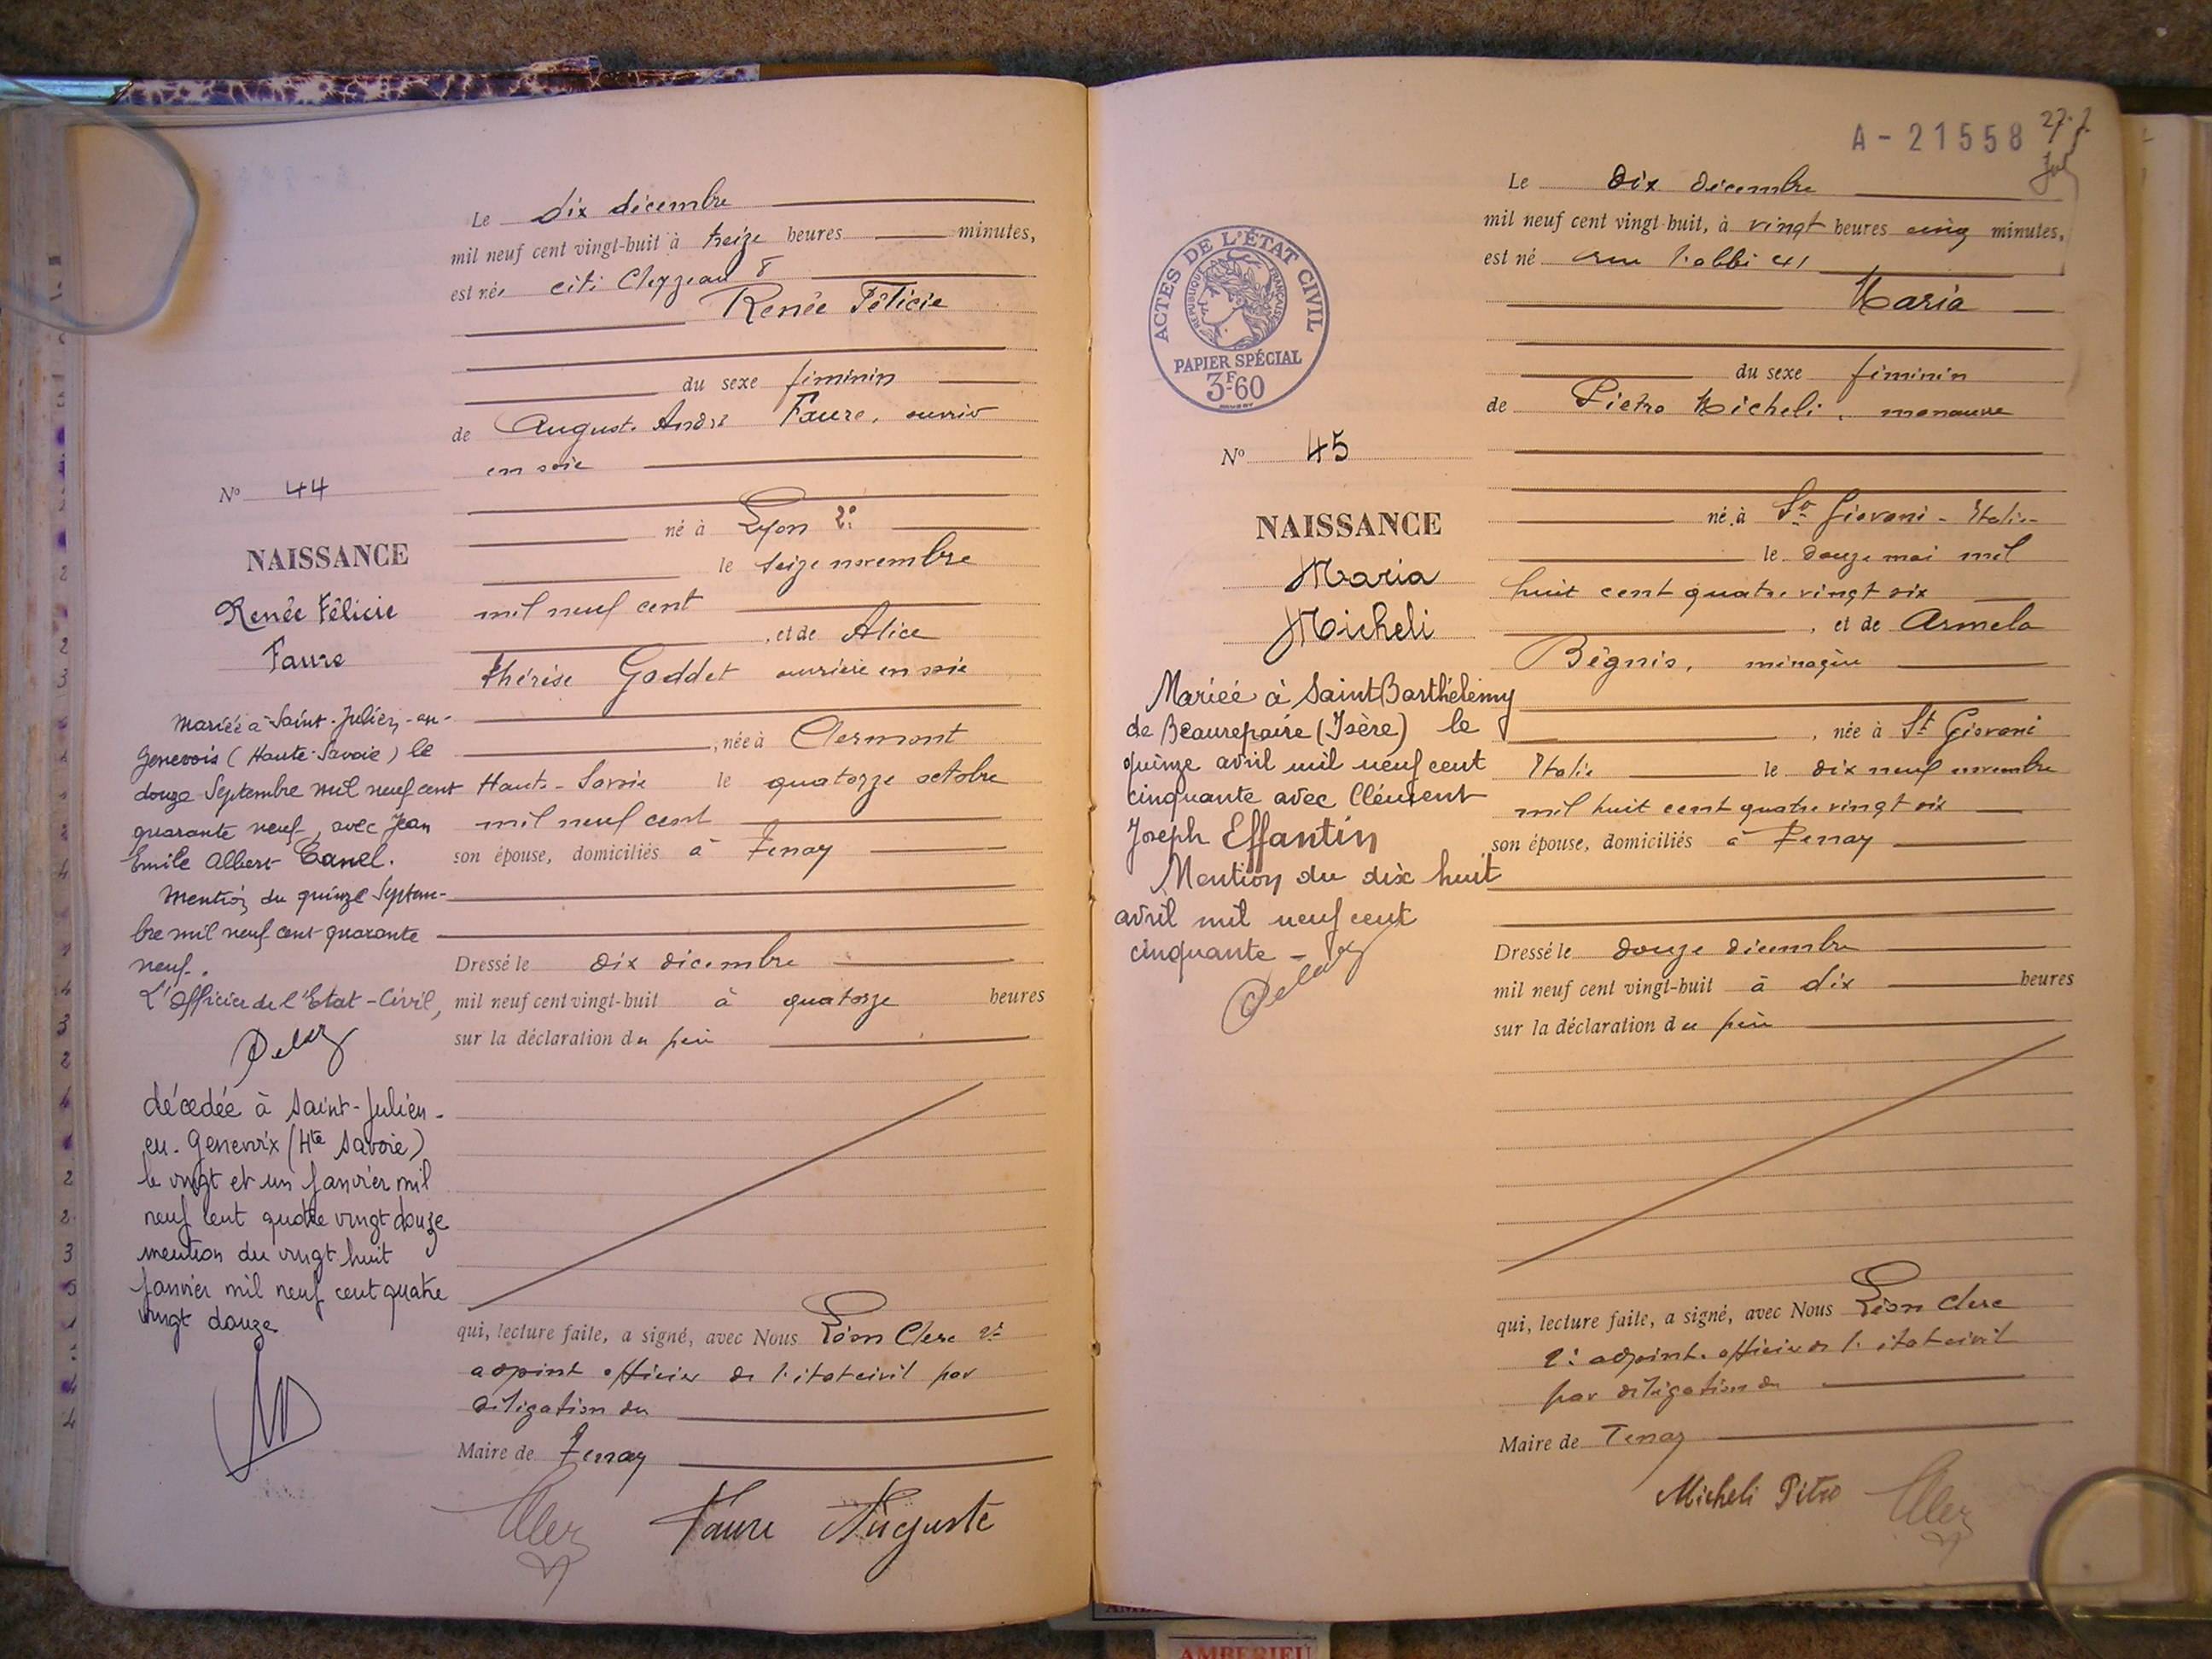 Le dix décembre
mil neuf cent vingt-huit à treize heures minutes,
est née cité Cleyzeau 8
Renée Félicie
du sexe féminin
de Auguste André Faure, ouvrier
en soie
né à Lyon 2e
le seize novembre
mil neuf cent
, et de Alice
Thérèse Goddet ouvrière en soie
, née à Clermont
Haute-Savoie le quatorze octobre
mil neuf cent
son épouse, domiciliés à Tenay
Dressé le dix décembre
mil neuf cent vingt-huit à quatorze heures
sur la déclaration du père
qui, lecture faite, a signé, avec Nous Léon Clerc 2e
adjoint officier de l'état civil par
délégation du
Maire de Tenay
Faure Auguste
No 44
NAISSANCE
Renée Félicie
Faure
Mariée à Saint-Julien-en-
Genevois (Haute-Savoie) le
douze Septembre mil neuf cent
quarante neuf, avec Jean
Emile Albert Canel.
Mention du quinze Septem-
bre mil neuf cent quarante
neuf.
L'Officier de l'Etat-Civil,
décédée à Saint-Julien-
en-Genevoix (Hte Savoie)
le vingt et un Janvier mil
neuf cent quatre vingt douze
mention du vingt huit
Janvier mil neuf cent quatre
vingt douze
A-21558
ACTES DE L'ÉTAT CIVIL
RÉPUBLIQUE FRANÇAISE
PAPIER SPÉCIAL
3F60
Le dix décembre
mil neuf cent vingt-huit, à vingt heures cinq minutes,
est né rue
Maria
du sexe féminin
de Pietro Micheli, manœuvre
né à St Giovani - Italie
le douze mai mil
huit cent quatre vingt dix
, et de Armela
Bégnis, ménagère
, née à St Giovani
Italie le dix neuf novembre
mil huit cent quatre vingt dix
son épouse, domiciliés à Tenay
Dressé le douze décembre
mil neuf cent vingt-huit à dix heures
sur la déclaration du père
qui, lecture faite, a signé, avec Nous Léon Clerc
2e adjoint officier de l'état civil
par délégation du
Maire de Tenay
Micheli Pitro
No 45
NAISSANCE
Maria
Micheli
Mariée à Saint Barthélemy
de Beaurepaire (Isère) le
quinze avril mil neuf cent
cinquante avec Clément
Joseph Effantin
Mention du dix huit
avril mil neuf cent
cinquante -